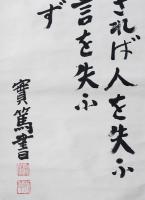 されば人を失ふ
言を失ふ
ず
寶篤書